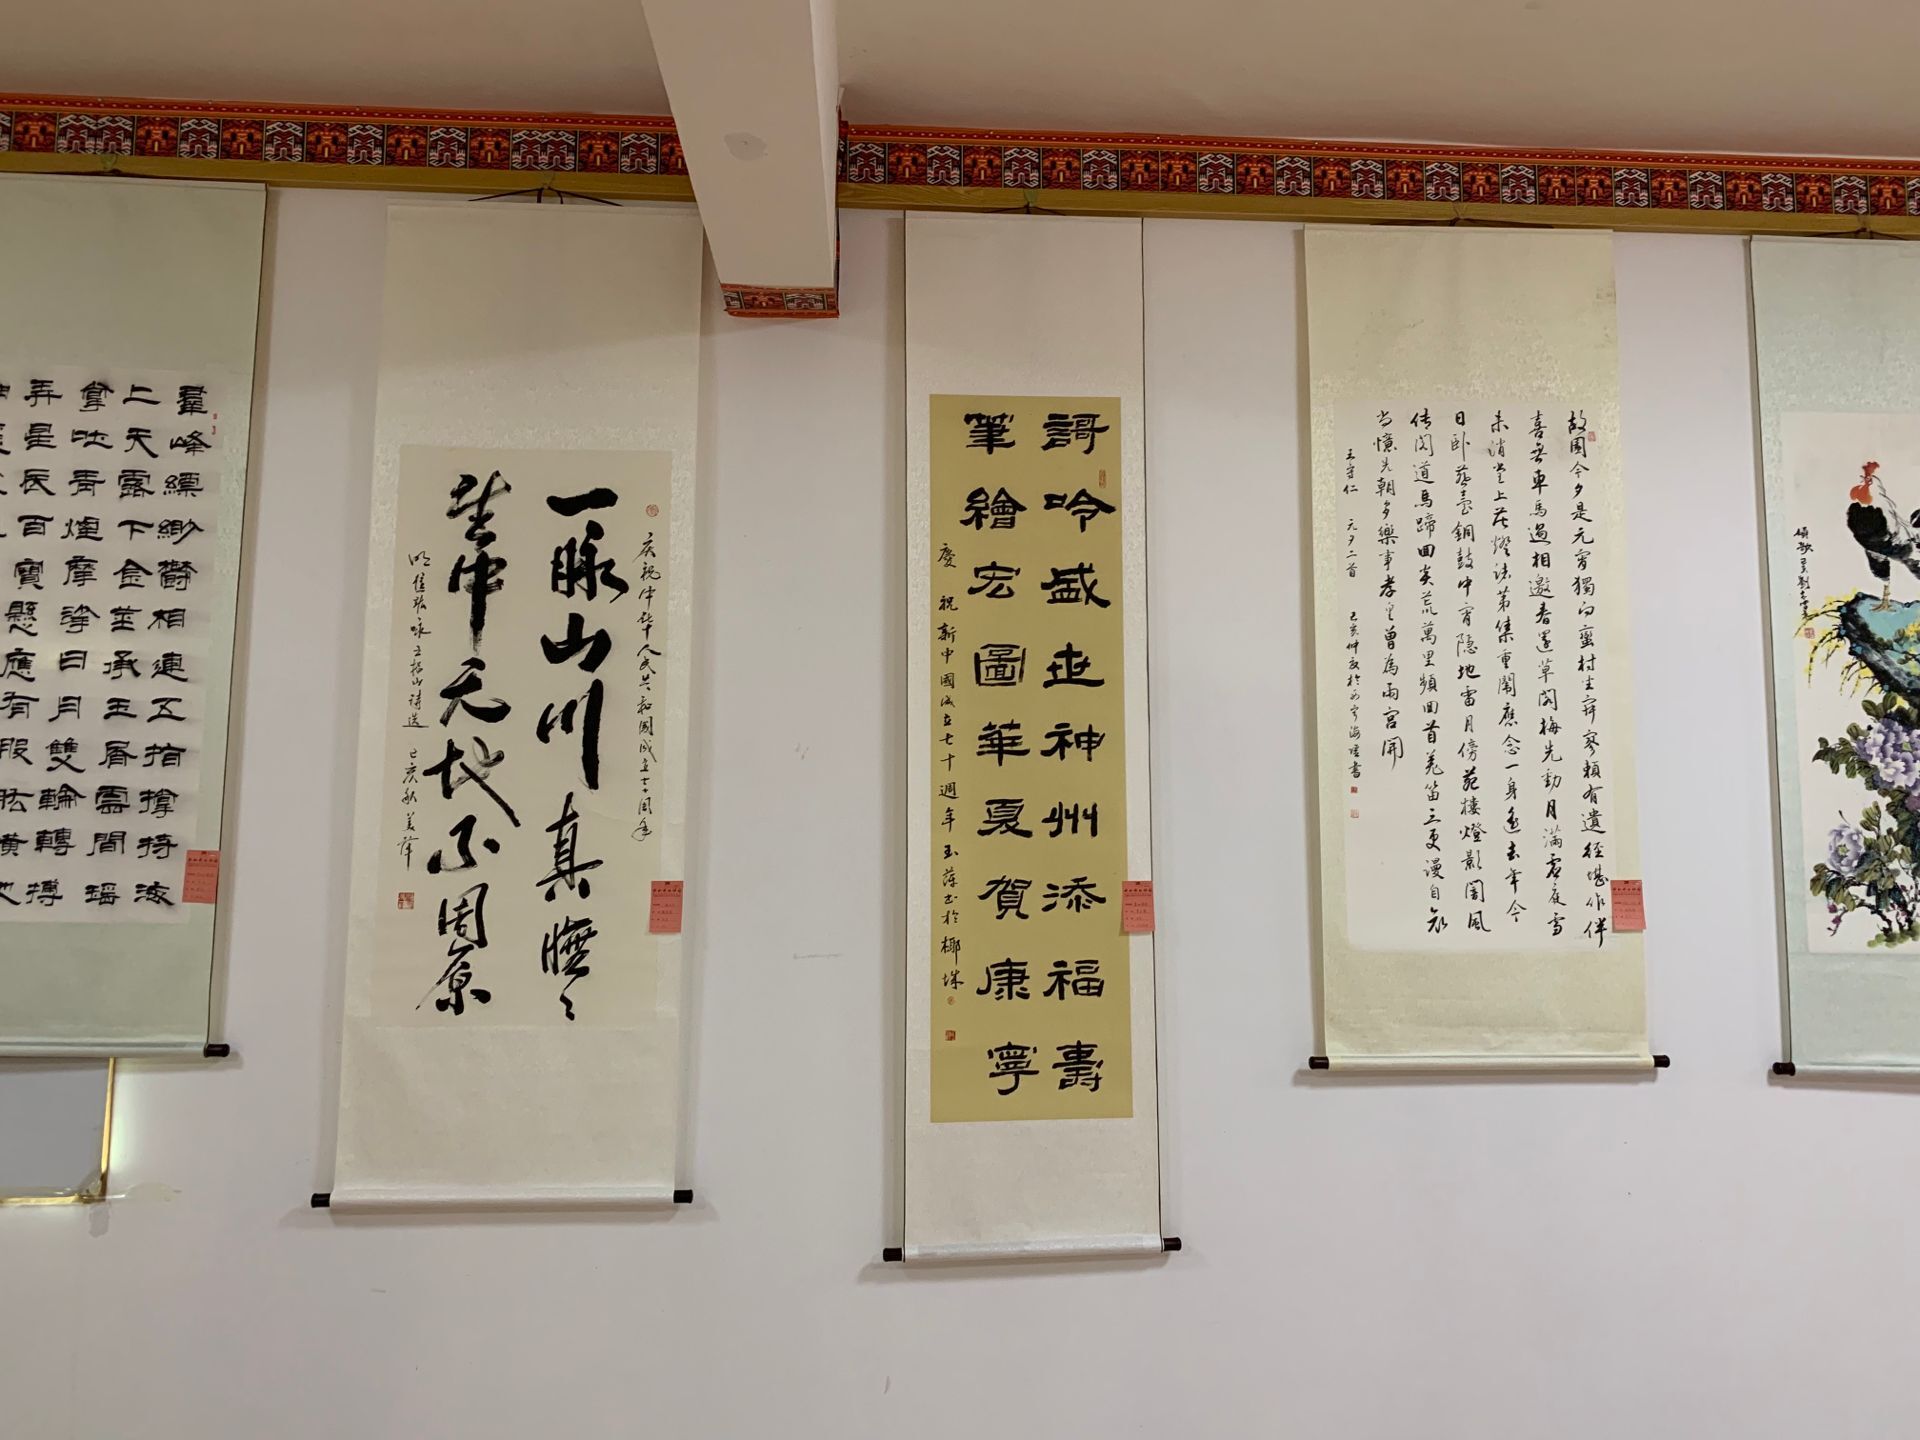 羣峰縹緲鬱相連五指撐持海
上天露下金莖承玉屑雲間瑤
掌吐青煙摩挲日月雙輪轉搏
弄星辰百寶懸應有股肱橫
庆祝中华人民共和國成立七十周年
一脉山川真膴〻
望中天地不周原
咏五指山詩选 己亥秋
謌吟盛世神州添福壽
筆繪宏圖華夏賀康寧
慶祝新中國成立七十週年 玉萍书於椰城
故園今夕是元宵獨向蠻村坐寂寥賴有遺經堪作伴
喜無車馬過相邀春還草閣梅先動月滿虛庭雪
未消堂上花燈諸弟集重闈應念一身遙去年今
日卧燕臺銅鼓中宵隱地雷月傍苑樓燈影闇風
传閣道馬蹄回炎荒萬里頻回首羌笛三更漫自哀
尚憶先朝多樂事孝皇曾為兩宮開
王守仁 元夕二首 己亥仲夏於
頌歌